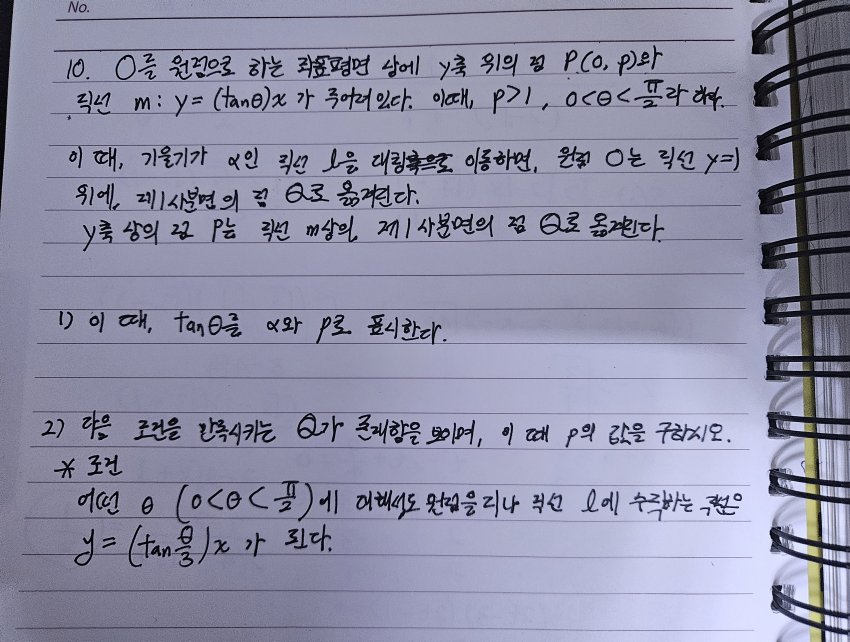 No.
10. O를 원점으로 하는 좌표평면 상에 y축 위의 점 P(0, p)와
직선 m: y = (tanθ)x 가 주어져있다. 이때, p>1, 0<θ<π/2라 하자.
이 때, 기울기가 α인 직선 l을 대칭축으로 이동하면, 원점 O는 직선 y=1
위에, 제1사분면의 점 Q로 옮겨진다.
y축 상의 점 P는 직선 m상의, 제1사분면의 점 Q로 옮겨진다.
1) 이 때, tanθ를 α와 p로 표시한다.
2) 다음 조건을 만족시키는 Q가 존재함을 보이며, 이 때 p의 값을 구하시오.
* 조건
어떤 θ (0<θ<π/2)에 대해서도 원점을 지나 직선 l에 수직하는 직선은
y = (tan θ/3)x 가 된다.